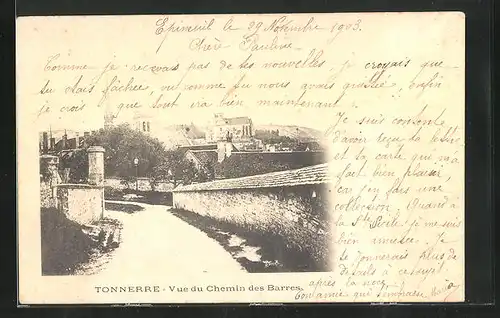 Epineuil le 29 Novembre 1903.
Chère Pauline
Comme je recevais pas de tes nouvelles, je croyais que
tu étais fâchée, vu comme tu nous avais quittée, enfin
je crois que tout ira bien maintenant.
Je suis contente
d'avoir reçu ta lettre
et ta carte que m'a
fait bien plaisir,
car j'en fais une
collection. Quand à
la Ste Cécile je me suis
bien amusée. Je
te donnerais plus de
détails à ce sujet
après la noce.
Ton amie qui t'embrasse
TONNERRE - Vue du Chemin des Barres.